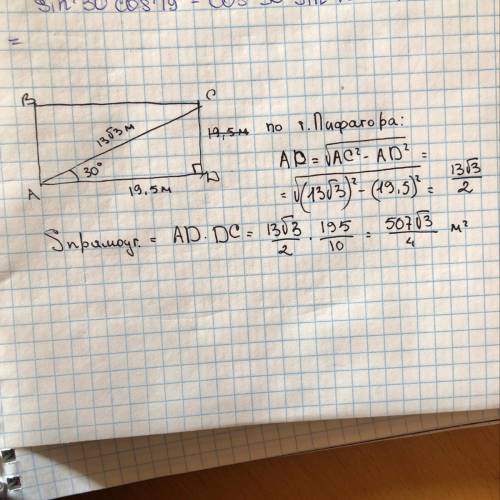 sin 30 cos 19 - cos 30 sin
=
B C
13√3 м
19,5 м
30°
A 19.5м D
по т. Пифагора:
AB = √AC² - AD² =
= √(13√3)² - (19.5)² = 13√3/2
Sпрямоуг. = AD · DC = 13√3/2 · 195/10 = 507√3/4 м²